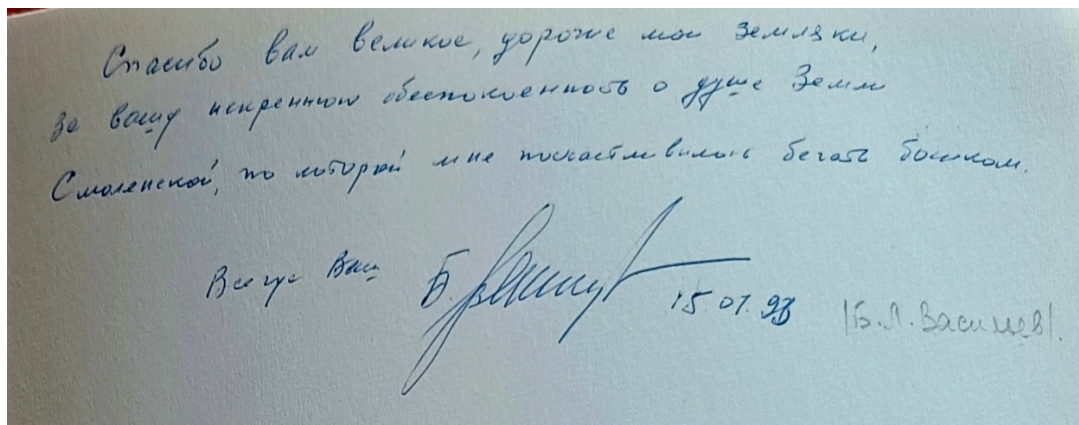 Спасибо вам великое, дорогие мои земляки,
за вашу искреннюю обеспокоенность о душе Земли
Смоленской, по которой мне посчастливилось бегать босиком.
Всегда Ваш Б. Васильев 15.01.93 /Б.Л. Васильев/.